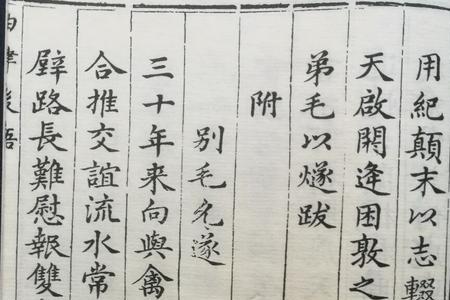 用紀顛末以志輟
天啟閼逢困敦之
弟毛以燧跋
附
別毛允遂
三十年来向與禽
合推交誼流水常
路長難慰報雙